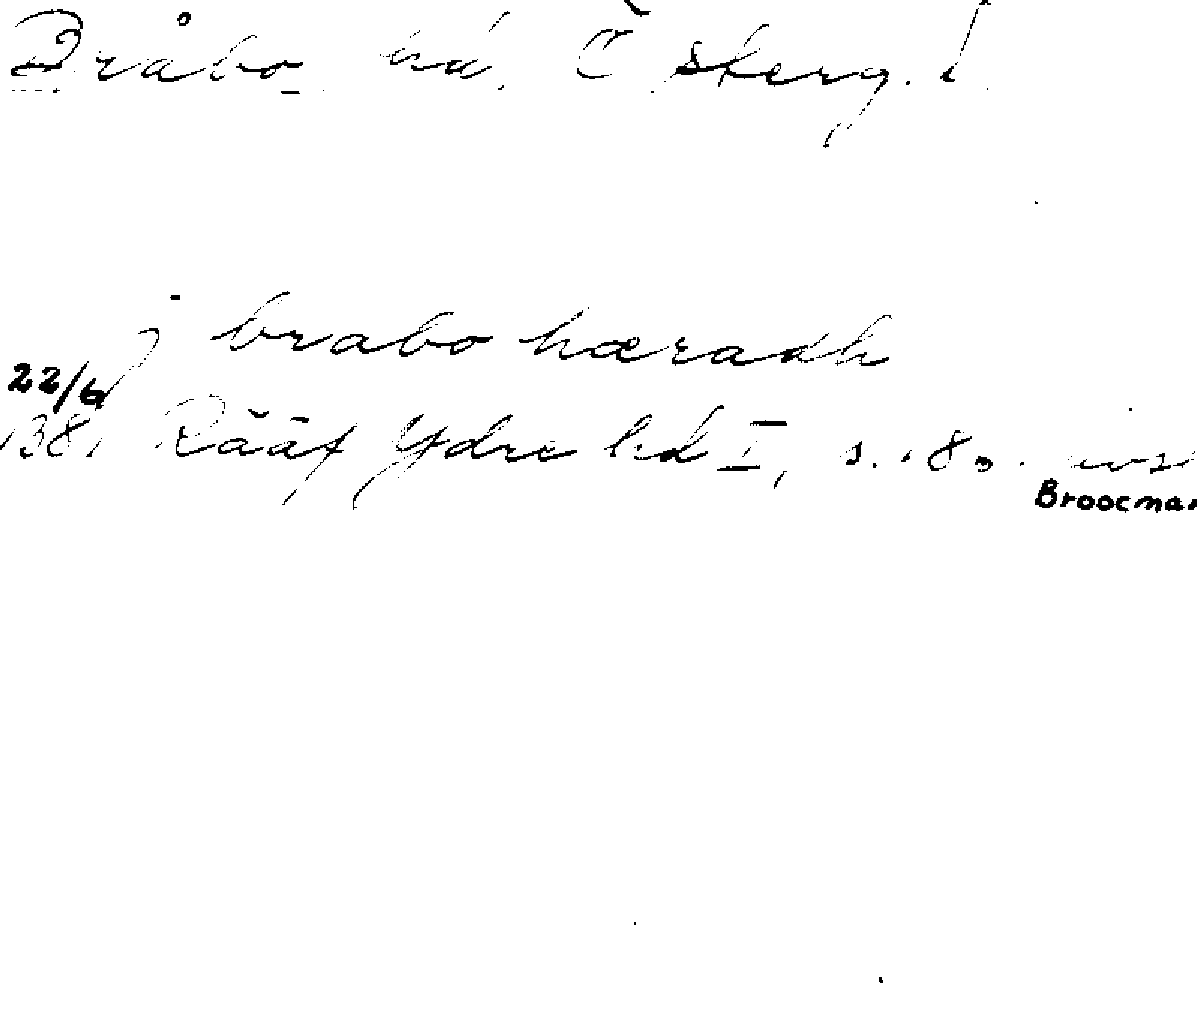 Bråbo hd. Österg. l
j brabo hæradh
22/6
138. Rääf Ydre hd I, s. 180. avsk
Broocman